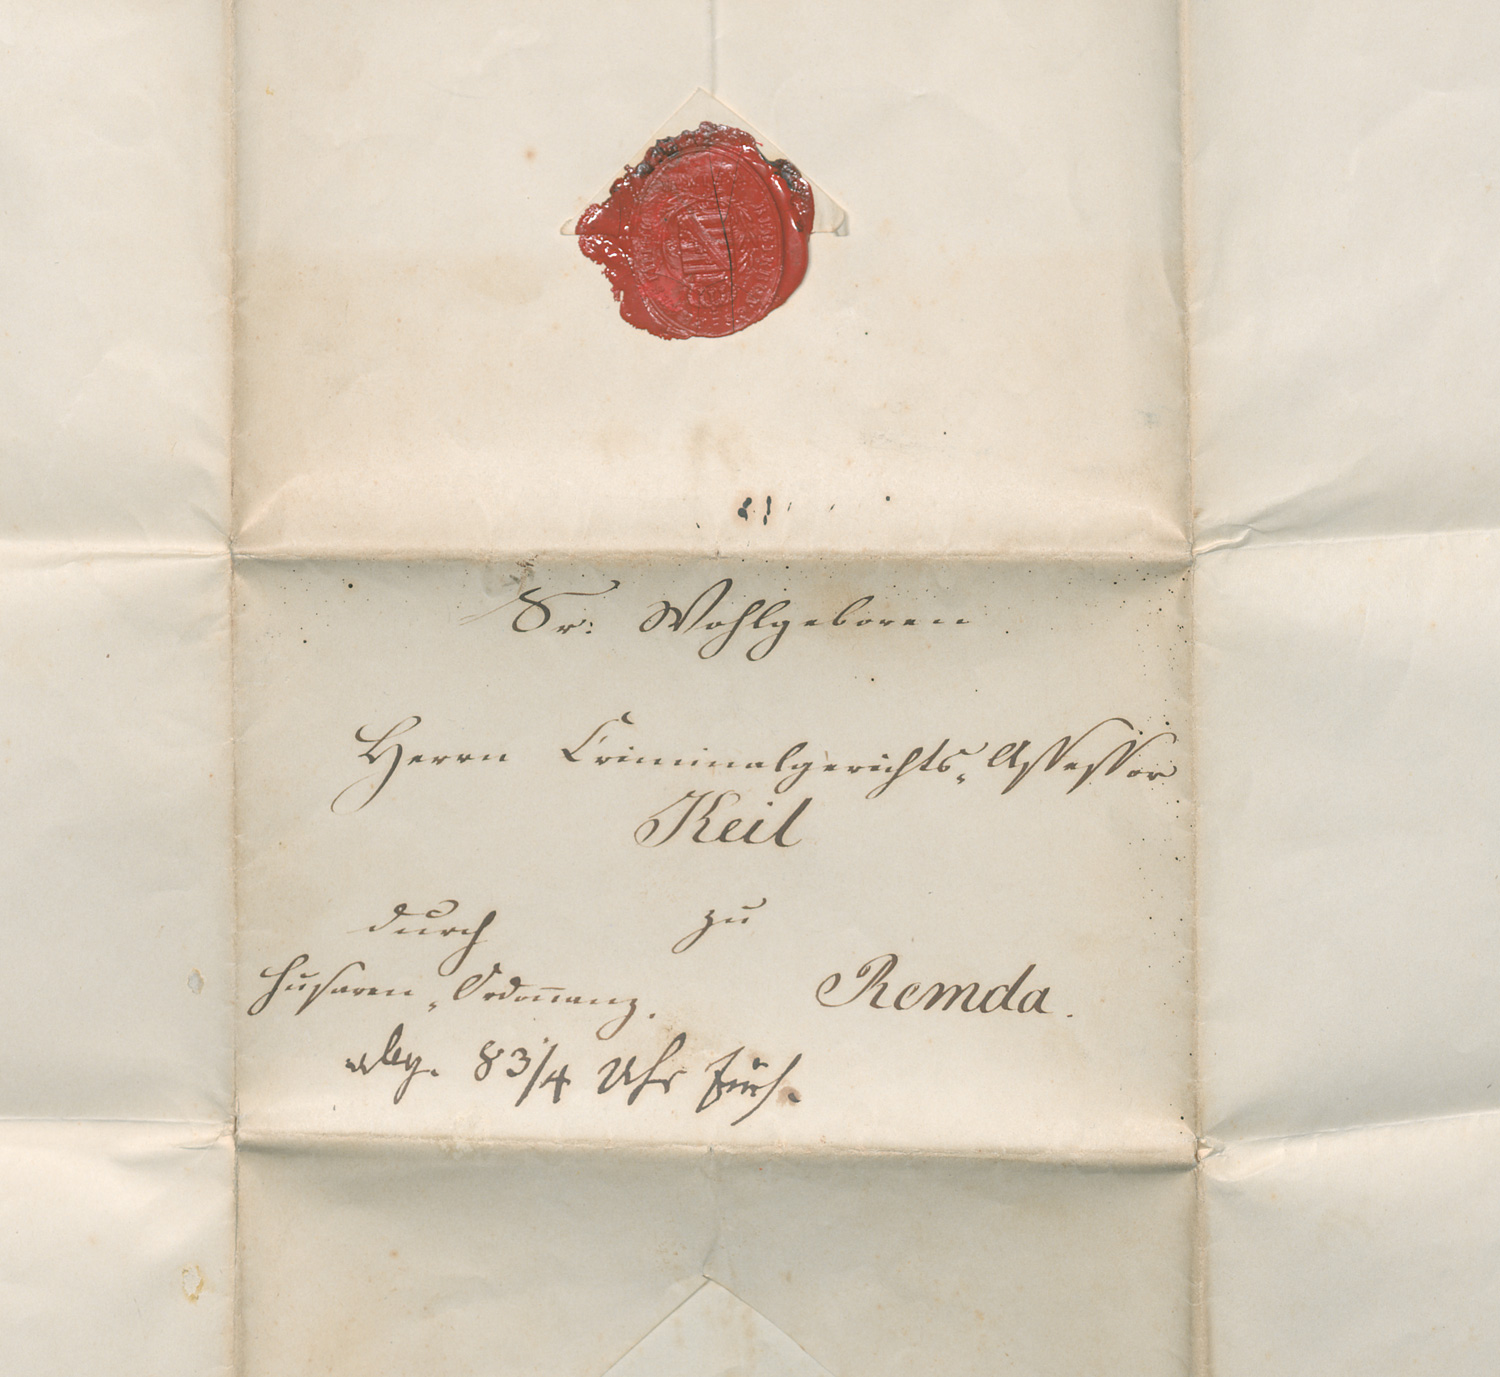 Sr: Wohlgeboren
Herrn Criminalgerichts-Assessor
Keil
durch zu
Husaren-Ordonanz. Remda.
abg. 8 3/4 Uhr früh.